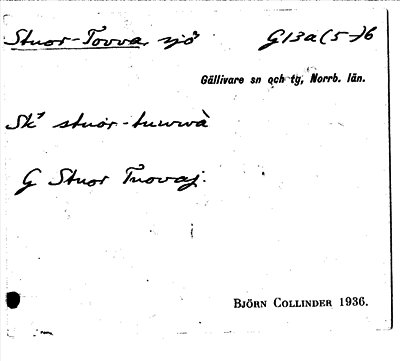 Stuor-Tovva, sjö G13a(5-)6
Gällivare sn och tg, Norrb. län.
Sk¹ stuor-tuvvvà
G Stuor Tuovaj.
BJÖRN COLLINDER 1936.